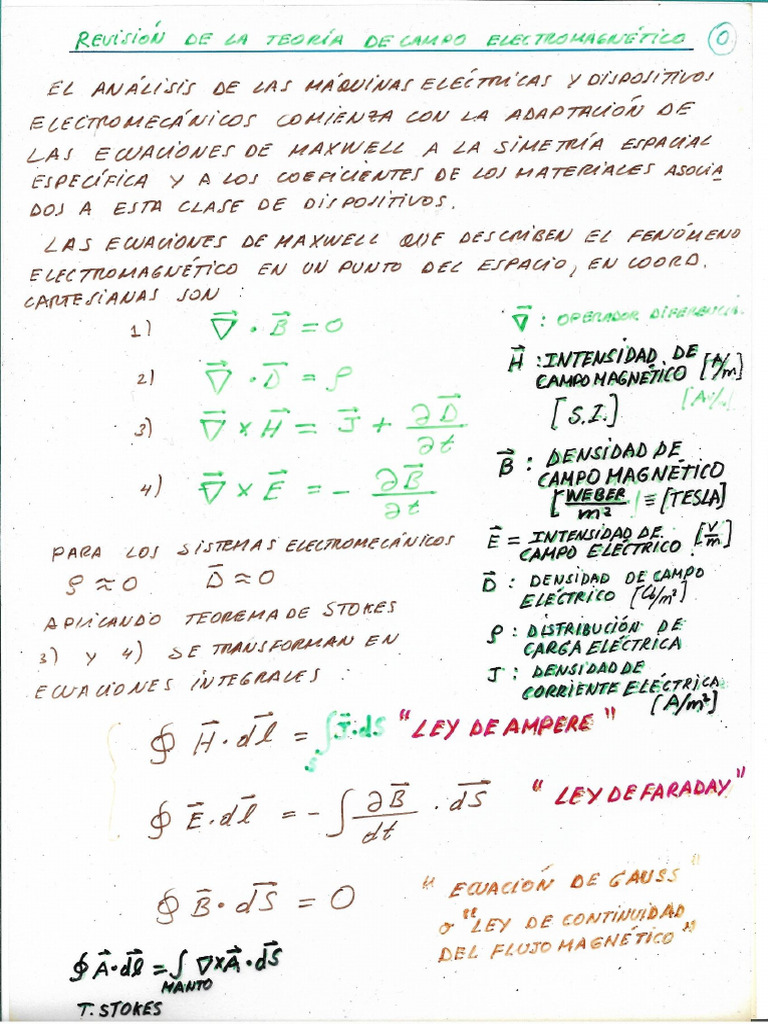 REVISIÓN DE LA TEORÍA DE CAMPO ELECTROMAGNÉTICO 0
EL ANÁLISIS DE LAS MÁQUINAS ELÉCTRICAS Y DISPOSITIVOS
ELECTROMECÁNICOS COMIENZA CON LA ADAPTACIÓN DE
LAS ECUACIONES DE MAXWELL A LA SIMETRÍA ESPACIAL
ESPECÍFICA Y A LOS COEFICIENTES DE LOS MATERIALES ASOCIA
DOS A ESTA CLASE DE DISPOSITIVOS.
LAS ECUACIONES DE MAXWELL QUE DESCRIBEN EL FENÓMENO
ELECTROMAGNÉTICO EN UN PUNTO DEL ESPACIO, EN COORD.
CARTESIANAS SON :
1) ∇⃗ · B⃗ = 0
2) ∇⃗ · D⃗ = ρ
3) ∇⃗ × H⃗ = J⃗ + ∂D⃗/∂t
4) ∇⃗ × E⃗ = - ∂B⃗/∂t
∇⃗ : OPERADOR DIFERENCIAL.
H⃗ : INTENSIDAD DE
CAMPO MAGNÉTICO [A/m]
[A/m]
[S.I.]
B⃗ : DENSIDAD DE
CAMPO MAGNÉTICO
[WEBER/m²] ≡ [TESLA]
E⃗ = INTENSIDAD DE
CAMPO ELÉCTRICO [V/m]
D⃗ : DENSIDAD DE CAMPO
ELÉCTRICO [Cb/m²]
ρ : DISTRIBUCIÓN DE
CARGA ELÉCTRICA
J : DENSIDAD DE
CORRIENTE ELÉCTRICA
[A/m²]
PARA LOS SISTEMAS ELECTROMECÁNICOS
ρ ≈ 0 D⃗ ≈ 0
APLICANDO TEOREMA DE STOKES
3) Y 4) SE TRANSFORMAN EN
ECUACIONES INTEGRALES :
∮ H⃗ · dl⃗ = ∫s J⃗ · dS "LEY DE AMPERE"
∮ E⃗ · dl⃗ = - ∫ ∂B⃗/dt · dS⃗ "LEY DE FARADAY"
∮ B⃗ · dS⃗ = 0 "ECUACIÓN DE GAUSS"
o "LEY DE CONTINUIDAD
DEL FLUJO MAGNÉTICO"
∮ A⃗ · dl⃗ = ∫ ∇×A⃗ · dS⃗
MANTO
T. STOKES